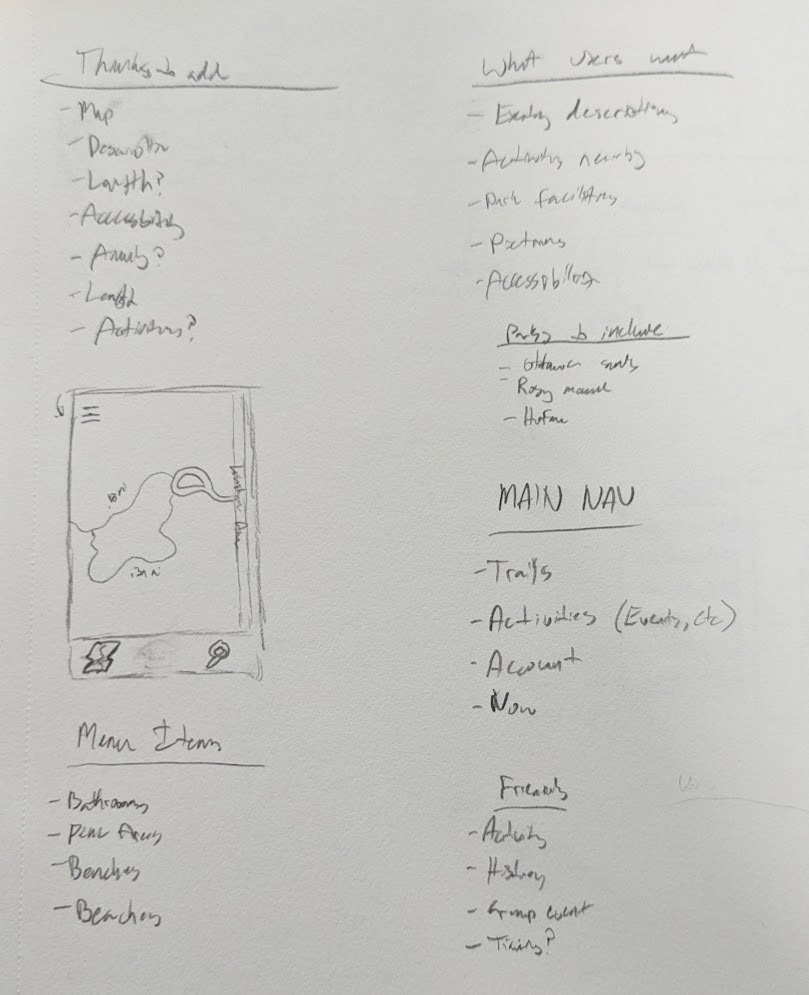 Things to add
- Map
- Description
- Length?
- Accessibility
- Length
- Activities?
.8 mi
.3 mi
Menu Items
- Bathrooms
- Benches
- Beaches
What users want
- descriptions
- Activities nearby
- Park facilities
- Pictures
- Accessibility
Parks to include
- Ottawa sands
- Rosy mound
MAIN NAV
- Trails
- Activities (Events, etc)
- Account
- Now
Friends
- Activity
- History
- Group event
- Timing?